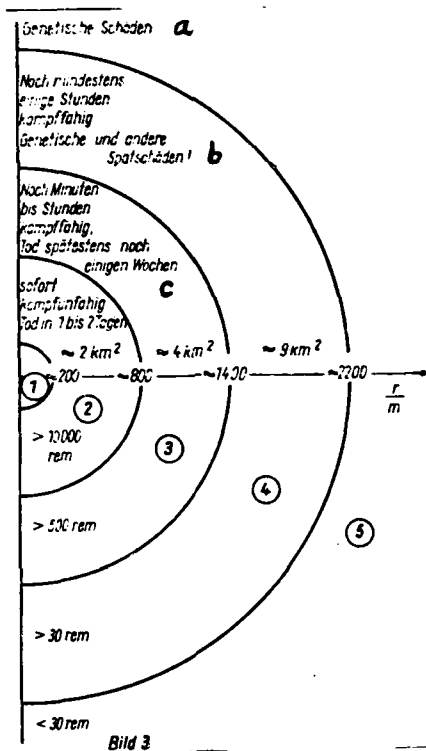 Genetische Schäden a
Noch mindestens
einige Stunden
kampffähig
Genetische und andere
Spätschäden! b
Noch Minuten
bis Stunden
kampffähig,
Tod spätestens nach
einigen Wochen
c
sofort
kampfunfähig
Tod in 1 bis 2 Tagen
≈ 2 km² ≈ 4 km² ≈ 9 km²
1 ≈200 ≈800 ≈1400 ≈2200 r/m
2
> 10000
rem
3
4
> 500 rem
5
> 30 rem
< 30 rem
Bild 3